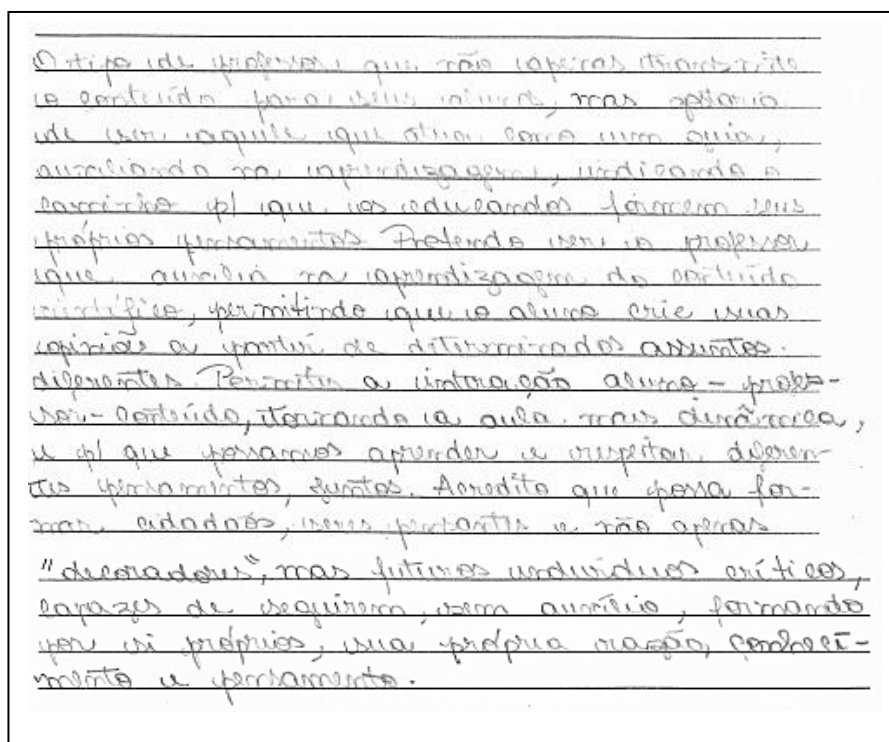 O tipo de professor, que não apenas transmite
o conteúdo para seus alunos, mas gostaria
de ser aquele que atua como um guia,
auxiliando na aprendizagem, indicando o
caminho p/ que os educandos formem seus
próprios pensamentos. Pretendo ser o professor
que auxilia na aprendizagem do conteúdo
científico, permitindo que o aluno crie suas
opiniões a partir de determinados assuntos.
diferentes. Permitir a interação aluno - profes-
sor - conteúdo, tornando a aula mais dinâmica,
e p/ que possamos aprender e respeitar diferen-
tes pensamentos, juntos. Acredito que possa for-
mar cidadãos, seres pensantes e não apenas
"decoradores", mas futuros indivíduos críticos,
capazes de seguirem, sem auxílio, formando
por si próprios, sua própria razão, conheci-
mento e pensamento.